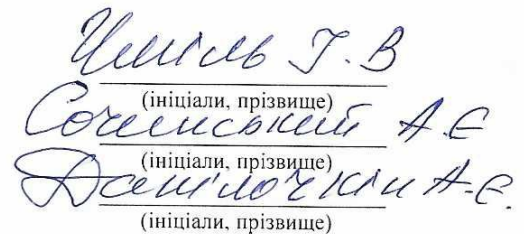 Г. В
(ініціали, прізвище)
Сочинський А.Є
(ініціали, прізвище)
Данілочкін А.Є.
(ініціали, прізвище)